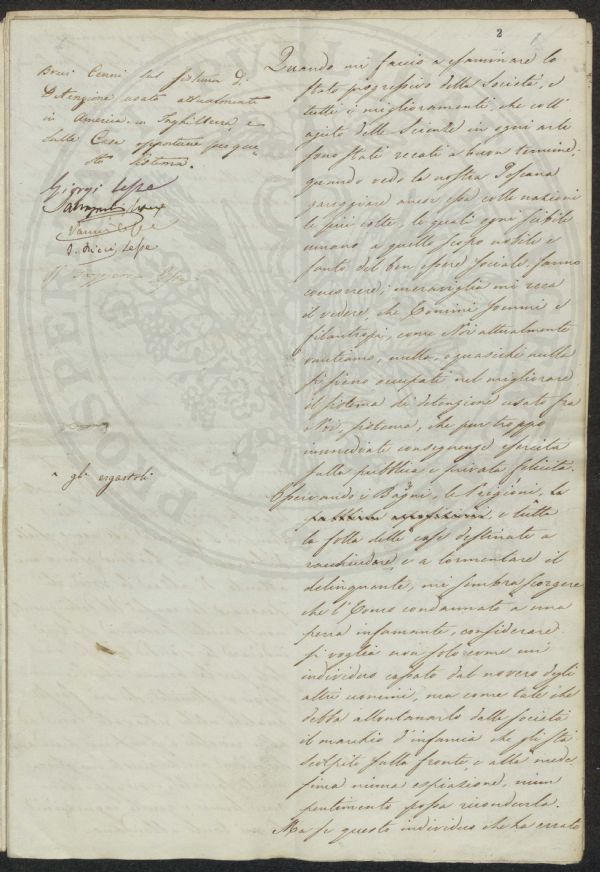 2
Brevi Cenni sul sistema di
Detenzione usato attualmente
in America, in Inghilterra, e
sulle Case opportune per que-
sto sistema.
Giorgi lesse
Vanni lesse
D. Ricci lesse
gli ergastoli
Quando mi faccio a esaminare lo
stato progressivo della Società, e
tutti i miglioramenti, che coll'
ajuto delle Scienze in ogni arte
sono stati recati a buon termine,
quando vedo la nostra Toscana
gareggiare ancor essa colle nazioni
le più colte, le quali ogni
umano a quello scopo nobile e
santo del ben essere sociale fanno
concorrere; meraviglia mi reca
il vedere, che Uomini sommi e
filantropi, come Noi attualmente
vantiamo, nulla, o quasichè nulla
si sieno occupati nel migliorare
il sistema di detenzione usato fra
Noi, sistema, che pur troppo
immediate conseguenze esercita
sulla pubblica e privata felicità.
Osservando i Bagni, le Prigioni, la
e tutta
la folla delle case destinate a
racchiudere, e a tormentare il
delinquente, mi sembra scorgere
che l'Uomo condannato a una
pena infamante, considerare
si voglia non solo come un'
individuo cassato dal novero degli
altri uomini, ma come tale che
debba allontanarlo dalla società
il marchio d'infamia che gli sta
scolpito sulla fronte, e alla mede
sima niuna espiazione, niun
pentimento possa ricondurlo.
Ma se questo individuo che ha errato